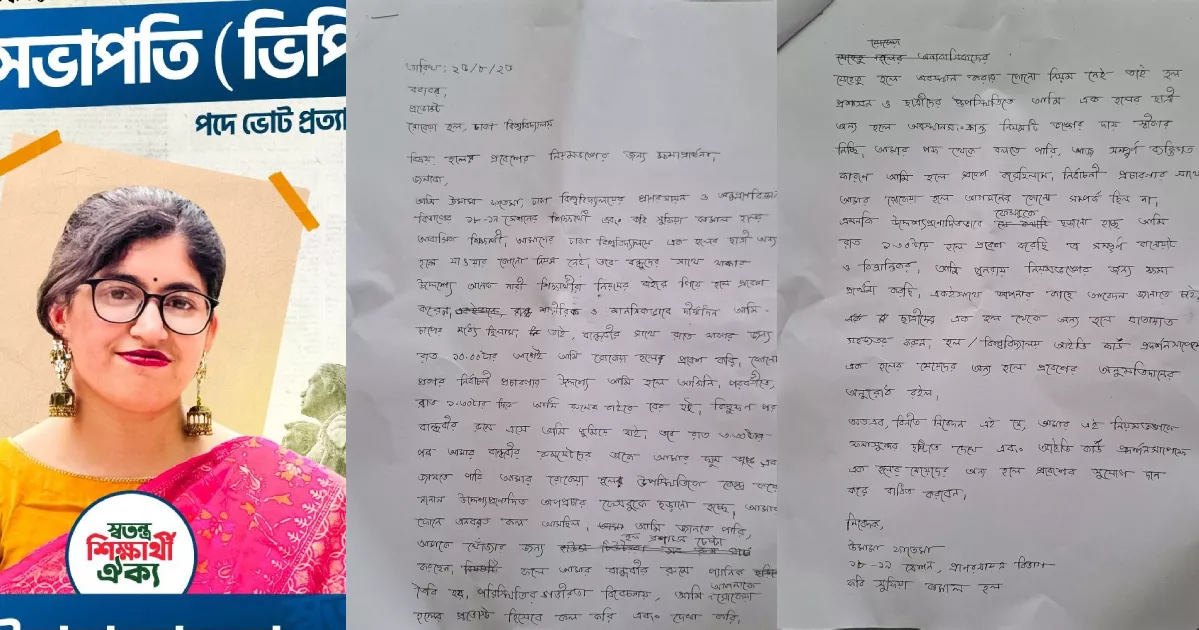 সভাপতি (ভিপি
পদে ভোট প্রত্যা
স্বতন্ত্র
শিক্ষার্থী
ঐক্য
তারিখ: ২৬/৮/২৫
বরাবর,
প্রভোস্ট
রোকেয়া হল, ঢাকা বিশ্ববিদ্যালয়
বিষয়: হলে প্রবেশের নিয়মভঙ্গের জন্য ক্ষমাপ্রার্থনা।
জনাবা,
আমি উমামা ফাতেমা, ঢাকা বিশ্ববিদ্যালয়ের প্রাণরসায়ন ও অনুপ্রাণবিজ্ঞান
বিভাগের ১৮-১৯ সেশনের শিক্ষার্থী এবং কবি সুফিয়া কামাল হলের
আবাসিক শিক্ষার্থী। আমাদের ঢাকা বিশ্ববিদ্যালয়ে এক হলের ছাত্রী অন্য
হলে যাওয়ার কোনো নিয়ম নেই। তবে বন্ধুদের সাথে থাকার
উদ্দেশ্যে অনেক নারী শিক্ষার্থীরা নিয়মের বাইরে গিয়ে হলে প্রবেশ
করেন। শারীরিক ও মানসিকভাবে দীর্ঘদিন আমি
চাপের মধ্যে ছিলাম। তাই, বান্ধবীর সাথে রাতে থাকার জন্য
রাত ১০:০০টার আগেই আমি রোকেয়া হলে প্রবেশ করি। কোনো
প্রকার নির্বাচনী প্রচারণার উদ্দেশ্যে আমি হলে আসিনি। পরবর্তীতে,
রাত ১:০০টার দিকে আমি রুমের বাইরে বের হই। কিছুক্ষণ পর
বান্ধবীর রুমে এসে আমি ঘুমিয়ে যাই। তবে রাত
পর আমার বান্ধবীর রুমমেটের আমার ঘুম ভাঙে এবং
জানতে পারি আমার রোকেয়া হলে উপস্থিতিকে কেন্দ্র করে
নানান উদ্দেশ্যপ্রণোদিত অপপ্রচার ফেসবুকে ছড়ানো হচ্ছে। আমার
ফোনে অনবরত কল আসছিল। আমি জানতে পারি,
আমাকে খোঁজার জন্য হল প্রশাসন চেষ্টা
করছেন। ফলে আমার বান্ধবীর রুমে প্যানিক
তৈরি হয়। পরিস্থিতির গভীরতা বিবেচনায়, আমি আপনাকে রোকেয়া
হলের প্রভোস্ট হিসেবে কল করি এবং দেখা করি।
যেহেতু হলে অনাবাসিকদের
যেহেতু হলে অবস্থান করার কোনো নিয়ম নেই তাই হল
প্রশাসন ও ছাত্রীদের উপস্থিতিতে আমি এক হলের ছাত্রী
অন্য হলে অবস্থানসংক্রান্ত নিয়মটি ভাঙ্গার দায় স্বীকার
নিচ্ছি। আমার পক্ষ থেকে বলতে পারি, আজ সম্পূর্ণ ব্যক্তিগত
কারণে আমি হলে প্রবেশ করেছিলাম। নির্বাচনী প্রচারণার সাথে
আমার রোকেয়া হলে আগমনের কোনো সম্পর্ক ছিল না।
এমনকি উদ্দেশ্যপ্রণোদিতভাবে ফেসবুকে ছড়ানো হচ্ছে আমি
রাত ১:০০টায় হলে প্রবেশ করেছি যা সম্পূর্ণ বানোয়াট
ও বিভ্রান্তিকর। আমি পুনরায় নিয়মভঙ্গের জন্য ক্ষমা
প্রার্থনা করছি। একইসাথে আপনার কাছে আবেদন জানাতে চাই
ছাত্রীদের এক হল থেকে অন্য হলে যাতায়াত
সহজতর করুন। হল/বিশ্ববিদ্যালয় আইডি কার্ড প্রদর্শনসাপেক্ষে
এক হলের মেয়েদের অন্য হলে প্রবেশের অনুমতিদানের
অনুরোধ রইল।
অতএব, বিনীত নিবেদন এই যে, আমার এই নিয়মভঙ্গকে
ক্ষমাসুন্দর দৃষ্টিতে দেখে এবং আইডি কার্ড প্রদর্শনসাপেক্ষে
এক হলের মেয়েদের অন্য হলে প্রবেশের সুযোগ দান
করে বাধিত করবেন।
নিবেদক,
উমামা ফাতেমা
১৮-১৯ সেশন, প্রাণরসায়ন বিভাগ
কবি সুফিয়া কামাল হল